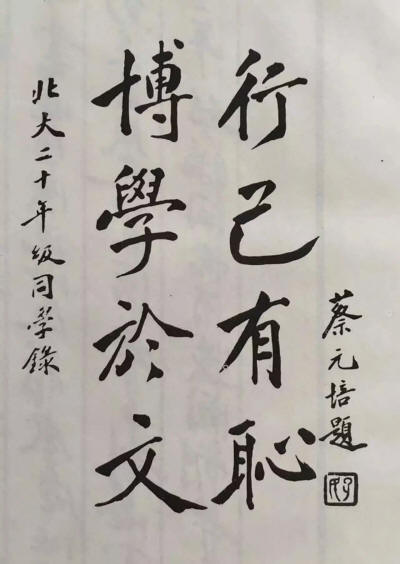 蔡元培題
行己有恥
博學於文
北大二十年級同學錄